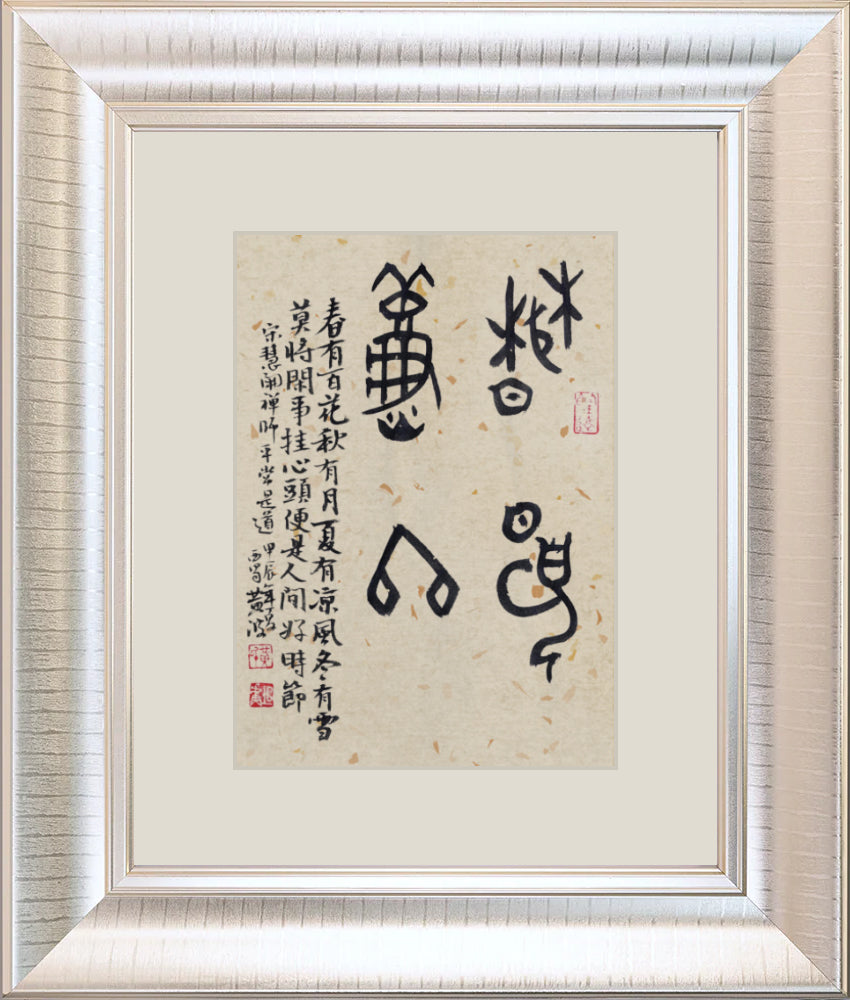 春夏
秋冬
春有百花秋有月夏有凉風冬有雪
莫將閑事挂心頭便是人間好時節
宋慧開禪師平常是道甲辰年
西蜀黄